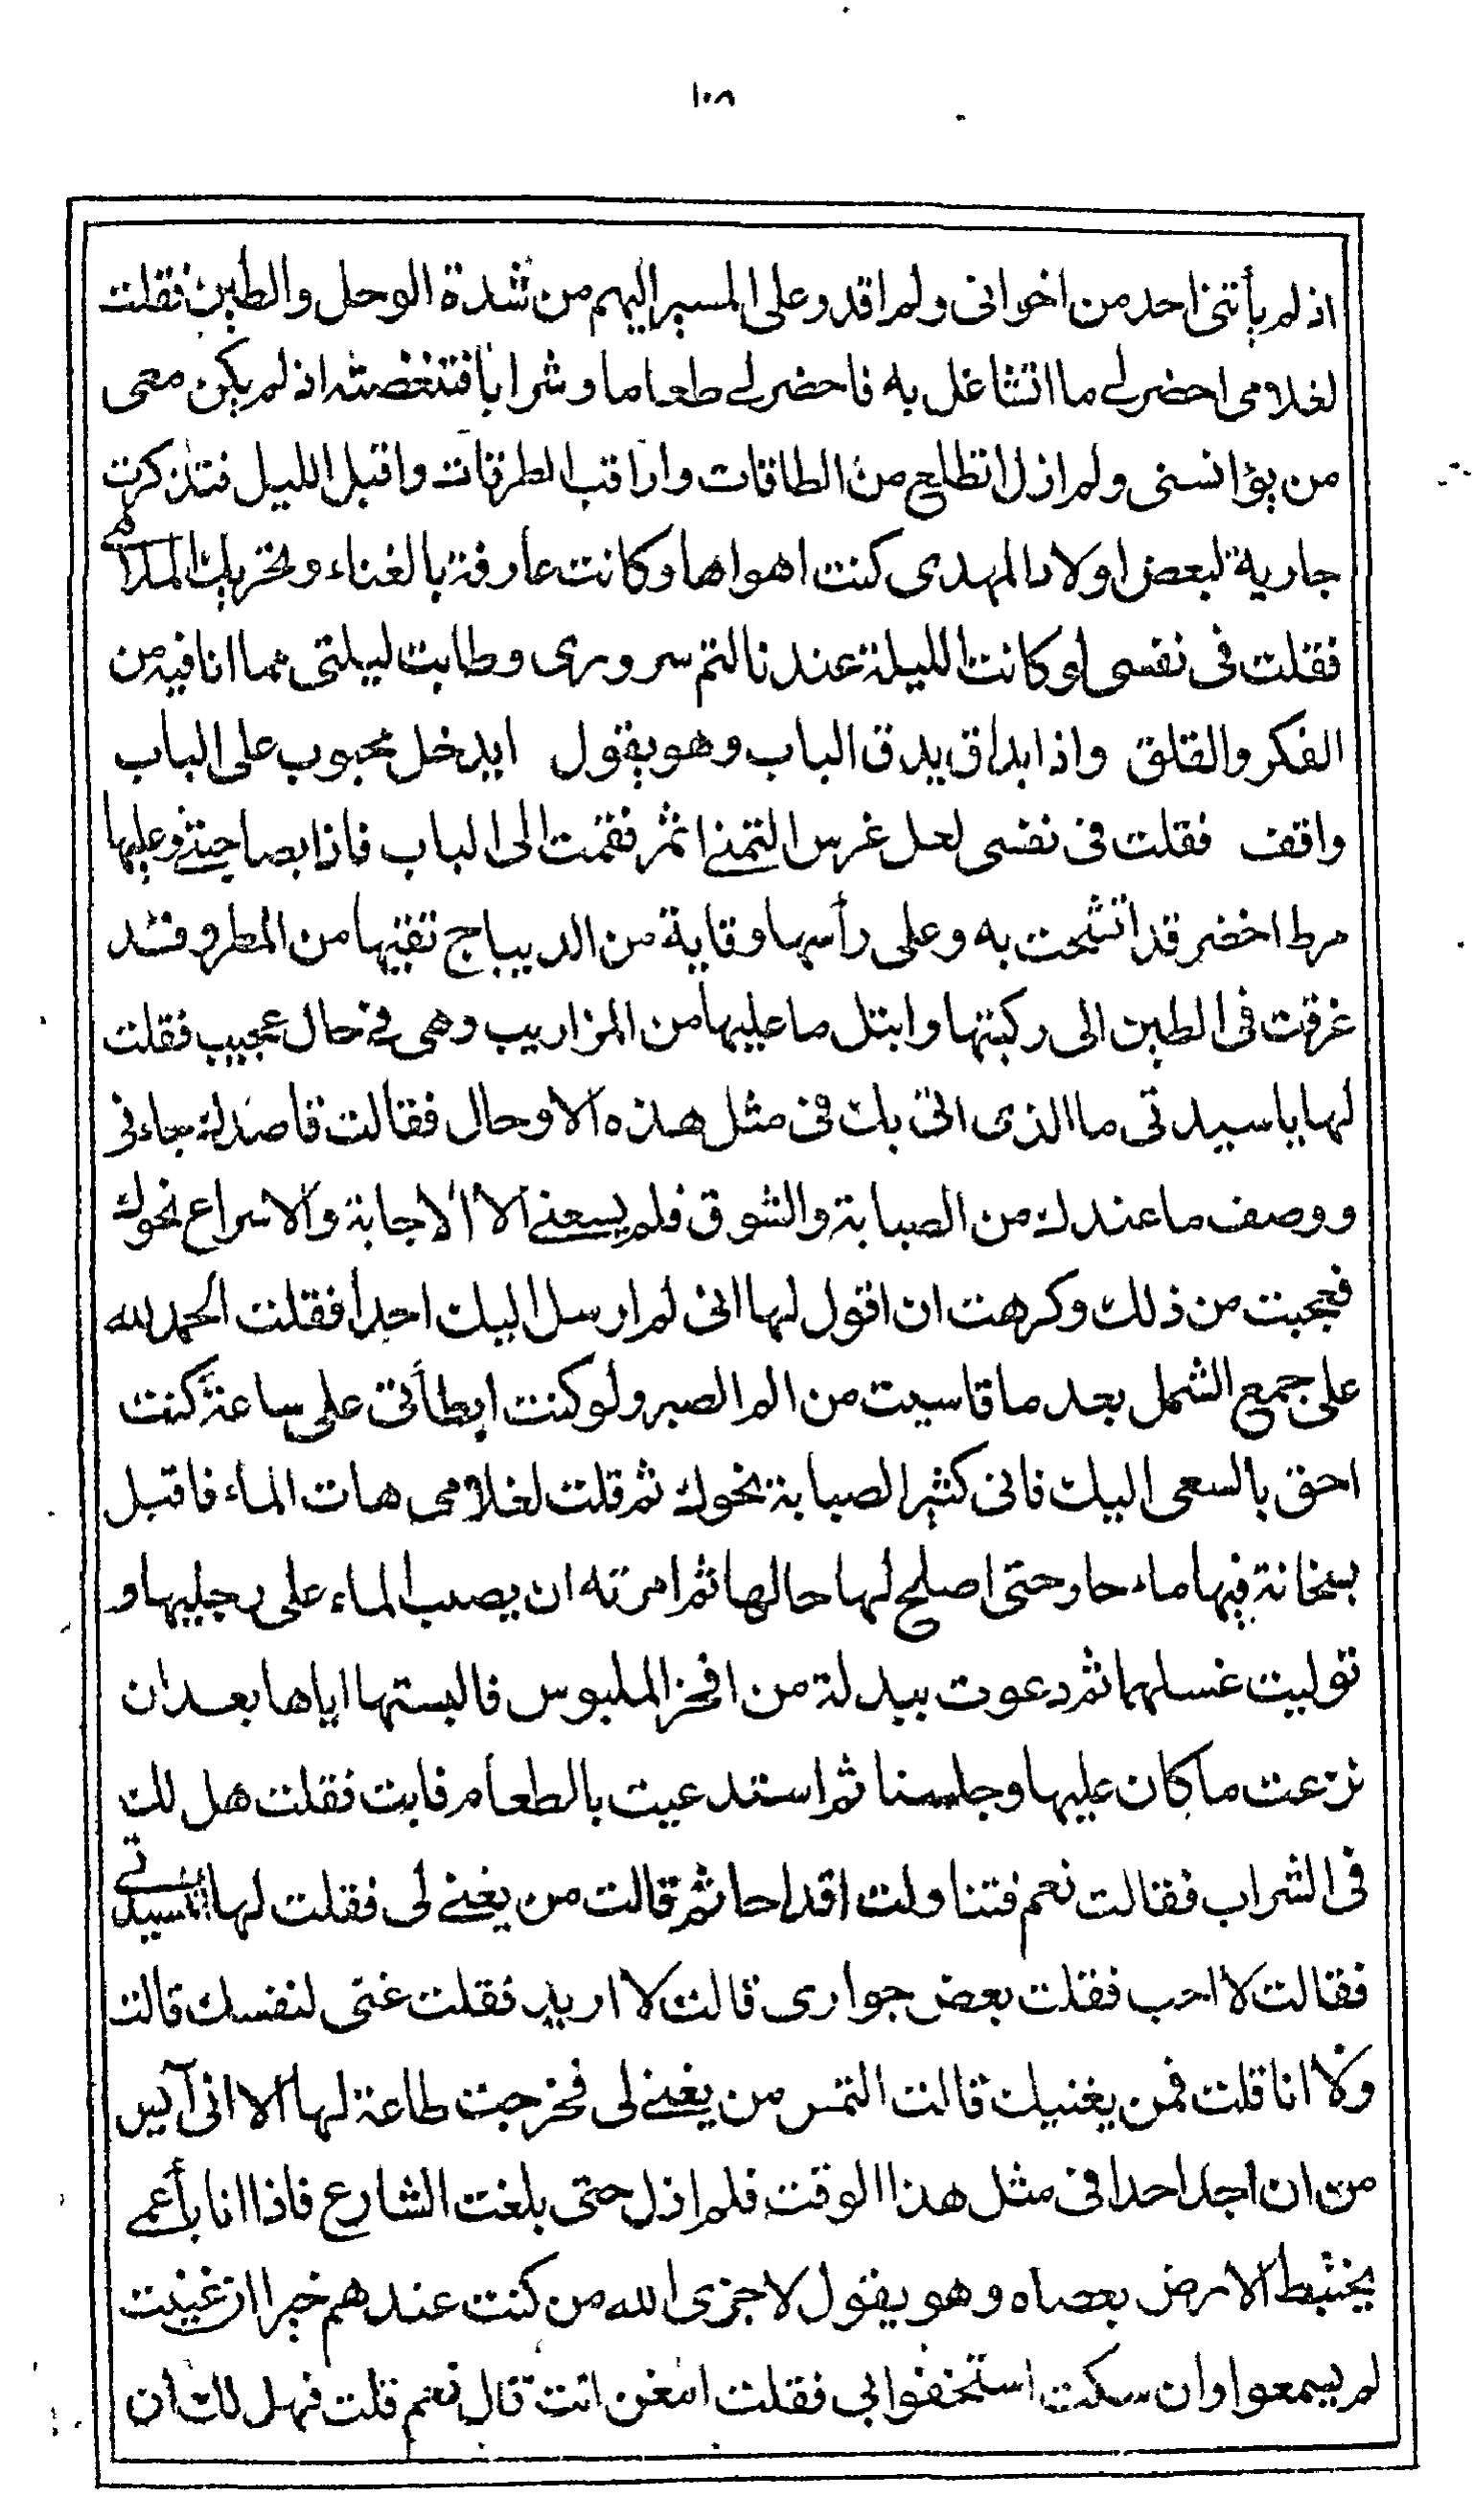 ١٠٨
اذ لم يأتنى احد من اخوانى ولم اقدر على المسير اليهم من شدة الوحل والطين فقلت
لغلامى احضر لى ما اتشاغل به فاحضر لى طعاما وشرابا فتنغضته اذ لم يكن معى
من يؤانسنى ولم ازل اتطلع من الطاقات واراقب الطرقات واقبل الليل فتذكرت
جارية لبعض اولاد المهدى كنت اهواها وكانت عارفة بالغناء وتحريك الملاهى
فقلت فى نفسى لو كانت الليلة عندنا لتم سرورى وطابت ليلتى مما انا فيه من
الفكر والقلق واذا بداق يدق الباب وهو يقول ايدخل محبوب على الباب
واقف فقلت فى نفسى لعل غرس التمنى اثمر فقمت الى الباب فاذا بصاحبتى وعليها
مرط اخضر قد اتشحت به وعلى رأسها وقاية من الديباج تقيها من المطر وقد
غرقت فى الطين الى ركبتها وابتل ما عليها من المزاريب وهى فى حال عجيب فقلت
لها يا سيدتى ما الذى اتى بك فى مثل هذه الاوحال فقالت قاصدك جاءنى
ووصف ما عندك من الصبابة والشوق فلم يسعنى الا الاجابة والاسراع نحوك
فعجبت من ذلك وكرهت ان اقول لها انى لم ارسل اليك احدا فقلت الحمد لله
على جمع الشمل بعد ما قاسيت من الم الصبر ولو كنت ابطأتى على ساعة كنت
احق بالسعى اليك فانى كثير الصبابة نحوك ثم قلت لغلامى هات الماء فاقبل
بسخانة فيها ماء حار حتى اصلح لها حالها ثم امرته ان يصب الماء على رجليها و
توليت غسلهما ثم دعوت ببدلة من افخر الملبوس فالبستها اياها بعد ان
نزعت ما كان عليها وجلسنا ثم استدعيت بالطعام فابت فقلت هل لك
فى الشراب فقالت نعم فتناولت اقداحا ثم قالت من يغنى لى فقلت لها انا يا سيدتى
فقالت لا احب فقلت بعض جوارى قالت لا اريد فقلت غنى لنفسك قالت
ولا انا قلت فمن يغنيك قالت التمس من يغنى لى فخرجت طاعة لها الا انى آيس
من ان اجد احدا فى مثل هذا الوقت فلم ازل حتى بلغت الشارع فاذا انا بأعمى
يخبط الارض بعصاه وهو يقول لا جزى الله من كنت عندهم خيرا ان غنيت
لم يسمعوا وان سكت استخفوا بى فقلت امغن انت قال نعم قلت فهل لك ان